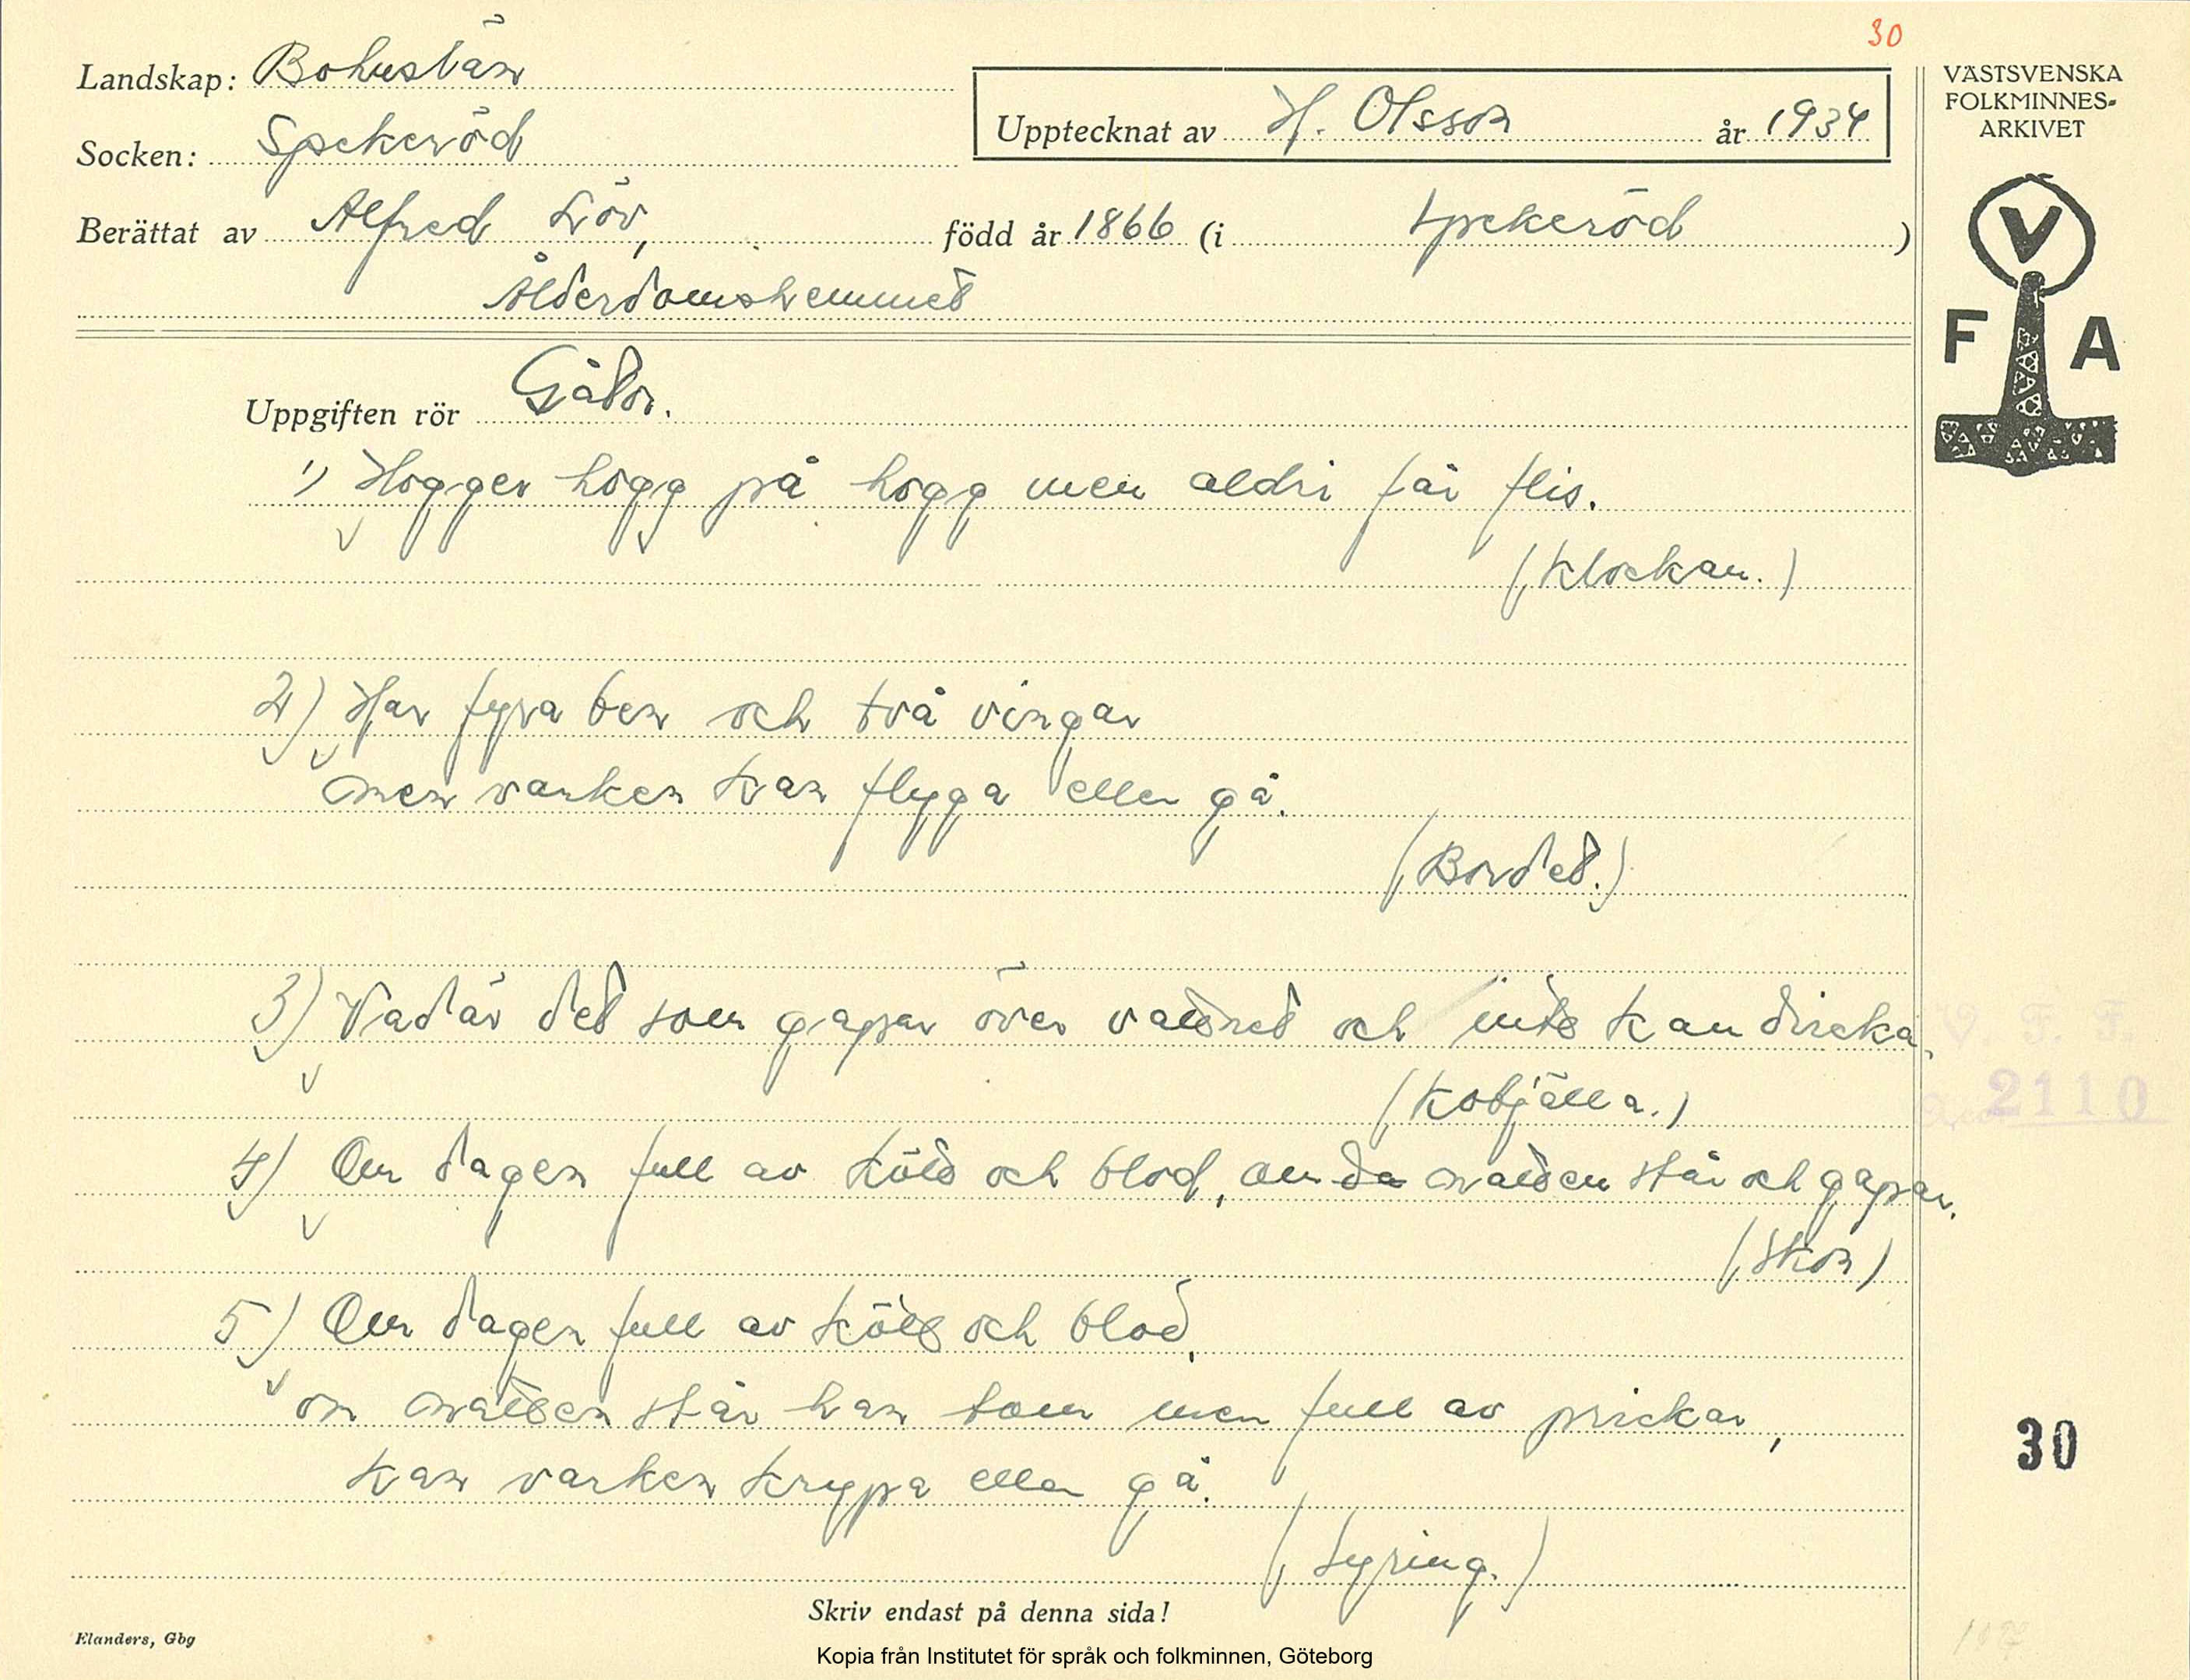 30
Landskap: Bohuslän
Socken: Spekeröd
Upptecknat av H. Olsson år 1934
VÄSTSVENSKA
FOLKMINNES-
ARKIVET
Berättat av Alfred Löv, född år 1866 (i Spekeröd)
Ålderdomshemmet
V
F A
Uppgiften rör Gåtor.
1) Hogger hogg på hogg men aldri får flis.
(Klockan.)
2) Har fyra ben och två vingar
men varken kan flyga eller gå.
(Bordet.)
3) Vad är det som gapar över vattnet och inte kan dricka.
(Kobjälla.)
V. F. F.
2110
4) Om dagen full av kött och blod, om da natten står och gapar.
(Skon)
5) Om dagen full av kött och blod,
om natten står han tom men full av prickar,
kan varken krypa eller gå.
30
(Fyring.)
Skriv endast på denna sida!
Elanders, Gbg
Kopia från Institutet för språk och folkminnen, Göteborg